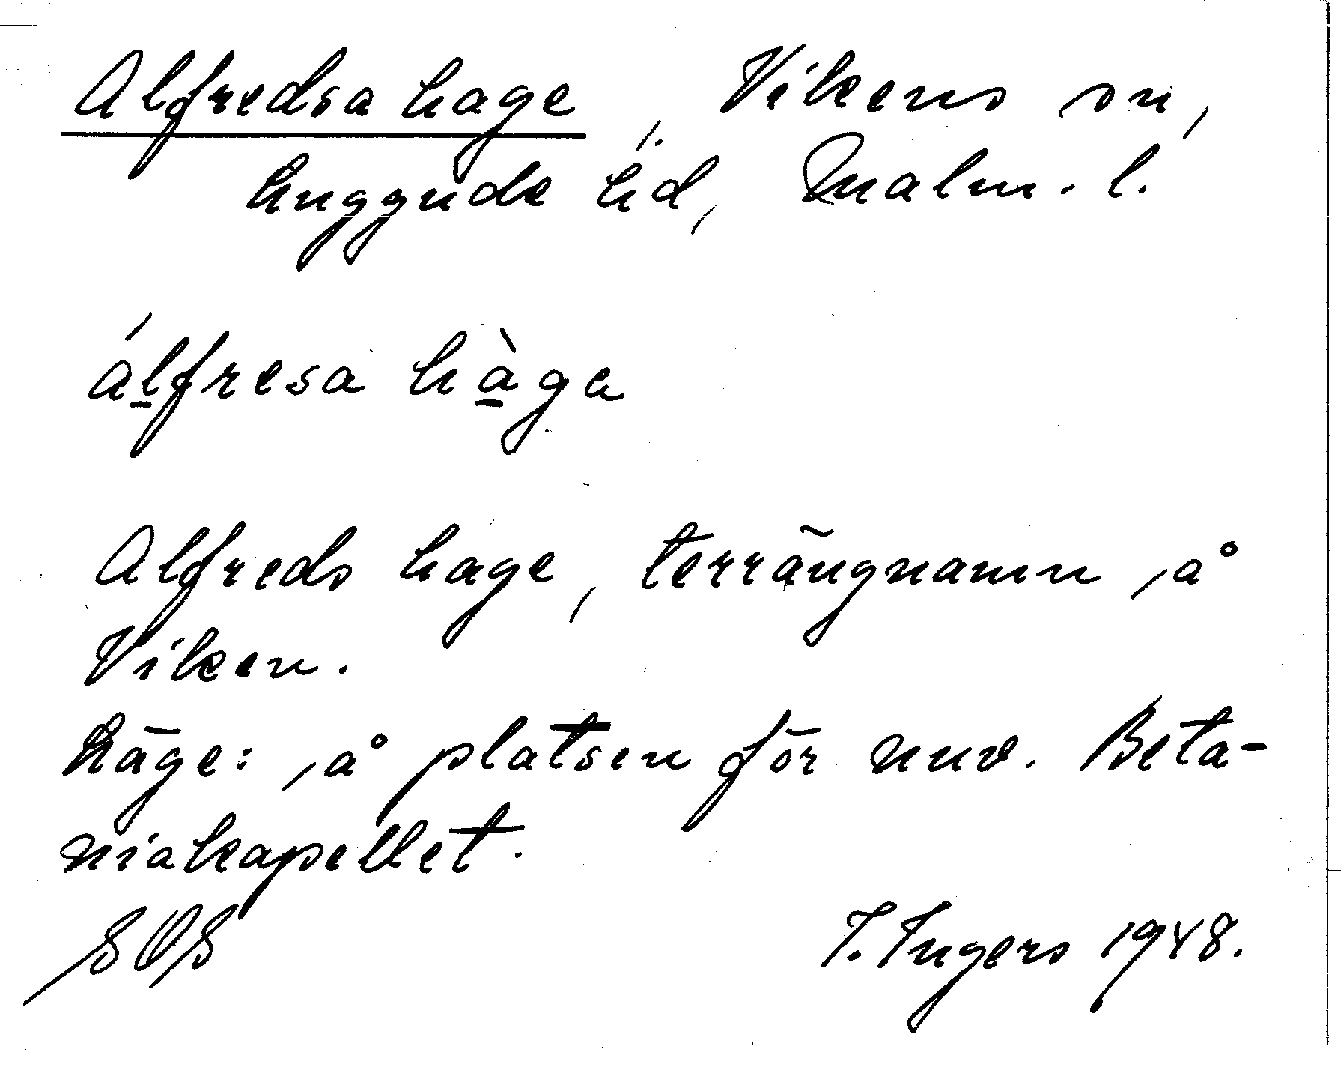 Alfredsa hage, Vikens sn,
Luggude hd, Malm. l.
álfresa hàga
Alfreds hage, terrängnamn, å
Viken.
Läge: å platsen för nuv. Beta-
niakapellet.
SOS I. Ingers 1948.